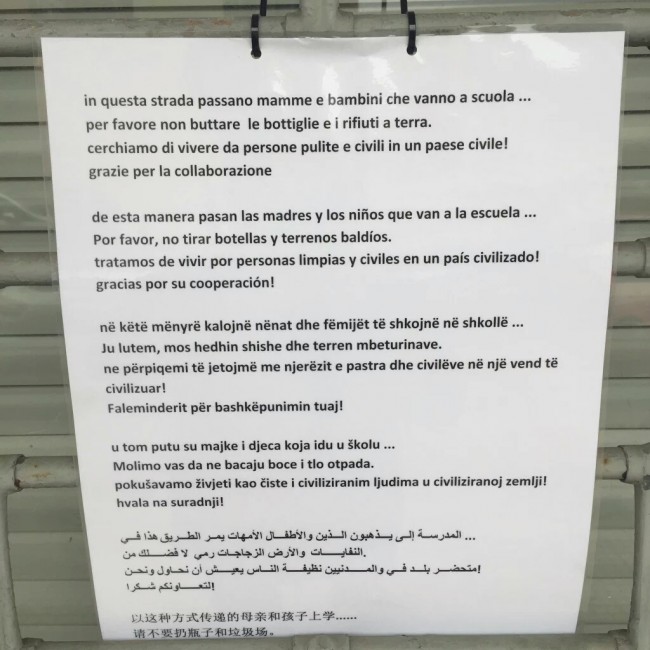 in questa strada passano mamme e bambini che vanno a scuola ...
per favore non buttare le bottiglie e i rifiuti a terra.
cerchiamo di vivere da persone pulite e civili in un paese civile!
grazie per la collaborazione
de esta manera pasan las madres y los niños que van a la escuela ...
Por favor, no tirar botellas y terrenos baldíos.
tratamos de vivir por personas limpias y civiles en un país civilizado!
gracias por su cooperación!
në këtë mënyrë kalojnë nënat dhe fëmijët të shkojnë në shkollë ...
Ju lutem, mos hedhin shishe dhe terren mbeturinave.
ne përpiqemi të jetojmë me njerëzit e pastra dhe civilëve në një vend të
civilizuar!
Faleminderit për bashkëpunimin tuaj!
u tom putu su majke i djeca koja idu u školu ...
Molimo vas da ne bacaju boce i tlo otpada.
pokušavamo živjeti kao čiste i civiliziranim ljudima u civiliziranoj zemlji!
hvala na suradnji!
المدرســة إلــى يــذهبون الــذين والأطفــال الأمهات يمـر الطـريق هذا فـي ...
النفايــــات والأرض الزجاجـات رمي لا فضــلك من.
إمتحضـر بلــد فـي والمــدنيين نظيفــة الناس يعيـش أن نحـاول ونحن
إلتعــاونكم شــكرا
以这种方式传递的母亲和孩子上学......
请不要扔瓶子和垃圾场。